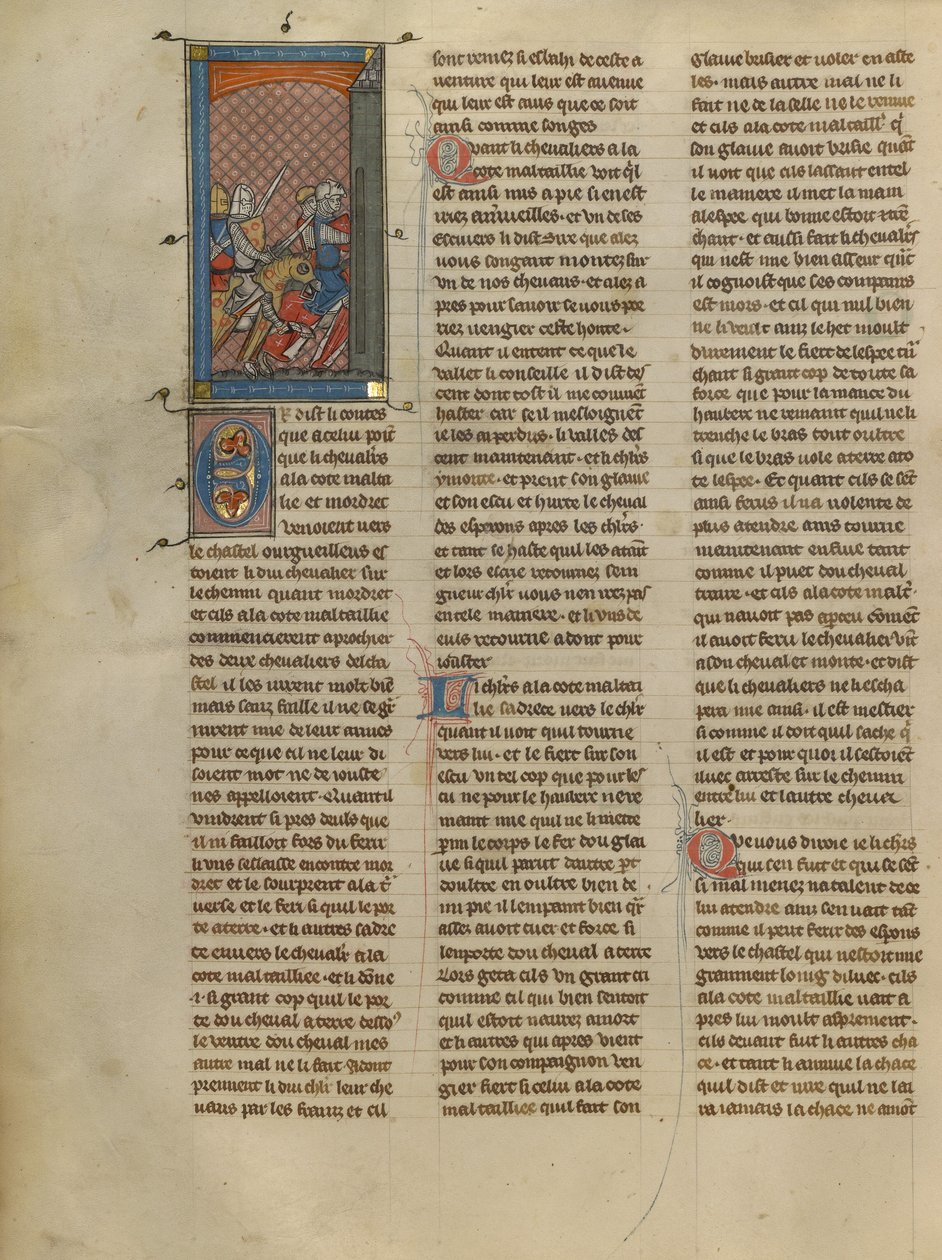 Or dist li contes
que a celui point
que li chevalrs
a la cote malta
lie et mordret
venoient vers
le chastel ourgueilleus es
toient li dui chevalier sur
le chemin quant mordret
et cils a la cote maltaillie
commencierent aprochier
des deux chevaliers del cha
stel il les virent molt bien
mais sanz faille il ne se gr
muirent mie de leur armes
pour ce que cil ne leur di
soient mot ne de iouste
nes appelloient. Quant il
vindrent si pres deuls que
il ni failloit fors du ferir
li uns seslaisse encontre mor
dret et le sourprent a la tr
verse et le feri si quil le por
te a terre. et li autres sadre
ce envers le chevalr a la
cote mal tailliee. et li done
.i. si grant cop quil le por
te dou cheval a terre dessoz
le ventre dou cheval mes
autre mal ne li fait Adont
prennent li dui chlr leur che
vaus par les frains et cil
sont venuz si esbahi de ceste a
venture qui leur est avenue
qui leur est avis que ce soit
ainsi comme songes
Quant li chevaliers a la
cote maltaillie voit ql
est ainsi mis a pie si en est
iriez a mrveilles. et un de ses
escuiers li dist Sire que alez
vous songant montez sur
un de nos chevaus. et alez a
pres pour savoir se vous por
riez vengier ceste honte.
Quant il entent ce que le
vallet li conseille il dist des
cent dont tost il me covient
haster car se il meslongnent
ie les ai perdus. li valles des
cent maintenant. et li chlrs
y monte. et prent son glaive
et son escu et hurte le cheval
des esperons apres les chlrs.
et tant se haste quil les ataint
et lors escrie retournez sein
gneur chlr vous nen irez pas
en tele maniere. et li uns de
euls retourne adont pour
iouster
Li chlrs a la cote maltai
lie sadrece vers le chlr
quant il voit quil tourne
vers lui. et le fiert sur son
escu un tel cop que pour les
cu ne pour le haubere ne re
maint mie quil ne li mette
parmi le corps le fer dou glai
ve si quil parut dautre pt
doultre en oultre bien de
mi pie il lempaint bien qr
assez avoit cuer et force si
lemporte dou cheval a terre
Lors geta cils un grant cri
comme cil qui bien sentoit
quil estoit navrez a mort
et li autres qui apres vient
pour son compaignon ven
gier fiert si celui a la cote
mal tailliee quil fait son
glaive brisier et voler en aste
les. mais autre mal ne li
fait ne de la selle ne le remue
et cils a la cote mal taillr q
son glaive avoit brisie quant
il voit que cils lassaut en tel
le maniere il met la main
a lespee qui bonne estoit et tren
chant. et aussi fait li chevalrs
qui nest mie bien asseur qnt
il cognoist que ses compains
est mors. et cil qui nul bien
ne li veult ainz le het moult
durement le fiert de lespee trn
chant si grant cop de toute sa
force que pour la mance du
haubere ne remaint quil ne li
trenche le bras tout oultre
si que le bras vole a terre ato
te lespee. Et quant cils se sent
ainsi ferus il na volente de
plus atendre ains tourne
maintenant en fuie tant
comme il puet dou cheval
traire. et cils a la cote malt.
qui navoit pas aperceu coment
il avoit feru le chevalier vint
a son cheval et monte. et dist
que li chevaliers ne li escha
pera mie ainsi. il est mestier
si comme il doit quil sache q
il est et pour quoi il sestoient
iluec arreste sur le chemin
entre lui et lautre cheva
lier.
Que vous diroie ie li chlrs
qui sen fuit et qui se sent
si mal menez na talent de ce
lui atendre ainz sen vait tant
comme il peut ferir des espons
vers le chastel qui nestoit mie
granment loing diluec. cils
a la cote maltaillie vait a
pres lui moult asprement.
cils devant fuit li autres cha
ce. et tant li annuie la chace
quil dist et iure quil ne lai
ra iamais la chace ne amont